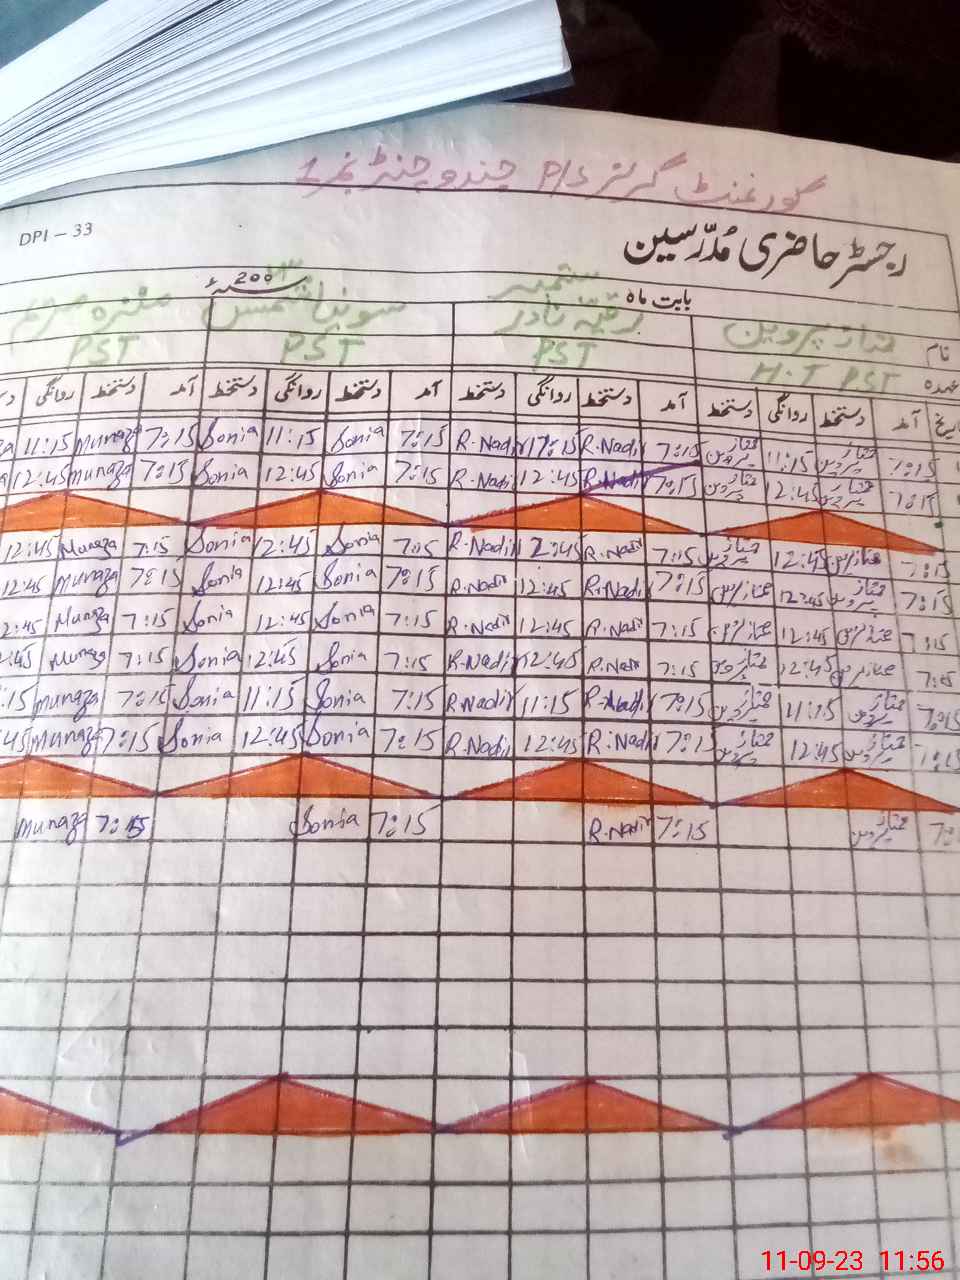 گورنمنٹ گرلز P/S چندو چنڑ نمبر 1
DPI – 33
رجسٹر حاضری مُدرّسین
بابت ماہ ستمبر سنہ 200ء
نام ممتاز پروین رقیہ نادر سونیا شمس
عہدہ H.T PST PST PST PST
تاریخ آمد دستخط روانگی دستخط آمد دستخط روانگی دستخط آمد دستخط روانگی دستخط آمد دستخط روانگی
7:15 ممتاز پروین 11:15 ممتاز پروین 7:15 R.Nadir 17:15 R.Nadir 7:15 Sonia 11:15 Sonia 7:15 Munaza 11:15
7:15 ممتاز پروین 12:45 ممتاز پروین 7:15 R.Nadir 12:45 R.Nadir 7:15 Sonia 12:45 Sonia 7:15 Munaza 12:45
7:15 ممتاز پروین 12:45 ممتاز پروین 7:15 R.Nadir 12:45 R.Nadir 7:15 Sonia 12:45 Sonia 7:15 Munaza 12:45
7:15 ممتاز پروین 12:45 ممتاز پروین 7:15 R.Nadir 12:45 R.Nadir 7:15 Sonia 12:45 Sonia 7:15 Munaza 12:45
7:15 ممتاز پروین 12:45 ممتاز پروین 7:15 R.Nadir 12:45 R.Nadir 7:15 Sonia 12:45 Sonia 7:15 Munaza 2:45
7:15 ممتاز پروین 12:45 ممتاز پروین 7:15 R.Nadir 12:45 R.Nadir 7:15 Sonia 12:45 Sonia 7:15 Munaza :45
7:15 ممتاز پروین 11:15 ممتاز پروین 7:15 R.Nadir 11:15 R.Nadir 7:15 Sonia 11:15 Sonia 7:15 Munaza :15
7:15 ممتاز پروین 12:45 ممتاز پروین 7:15 R.Nadir 12:45 R.Nadir 7:15 Sonia 12:45 Sonia 7:15 Munaza 45
7:1 ممتاز پروین 7:15 R.Nadir 7:15 Sonia 7:15 Munaza
11-09-23 11:56